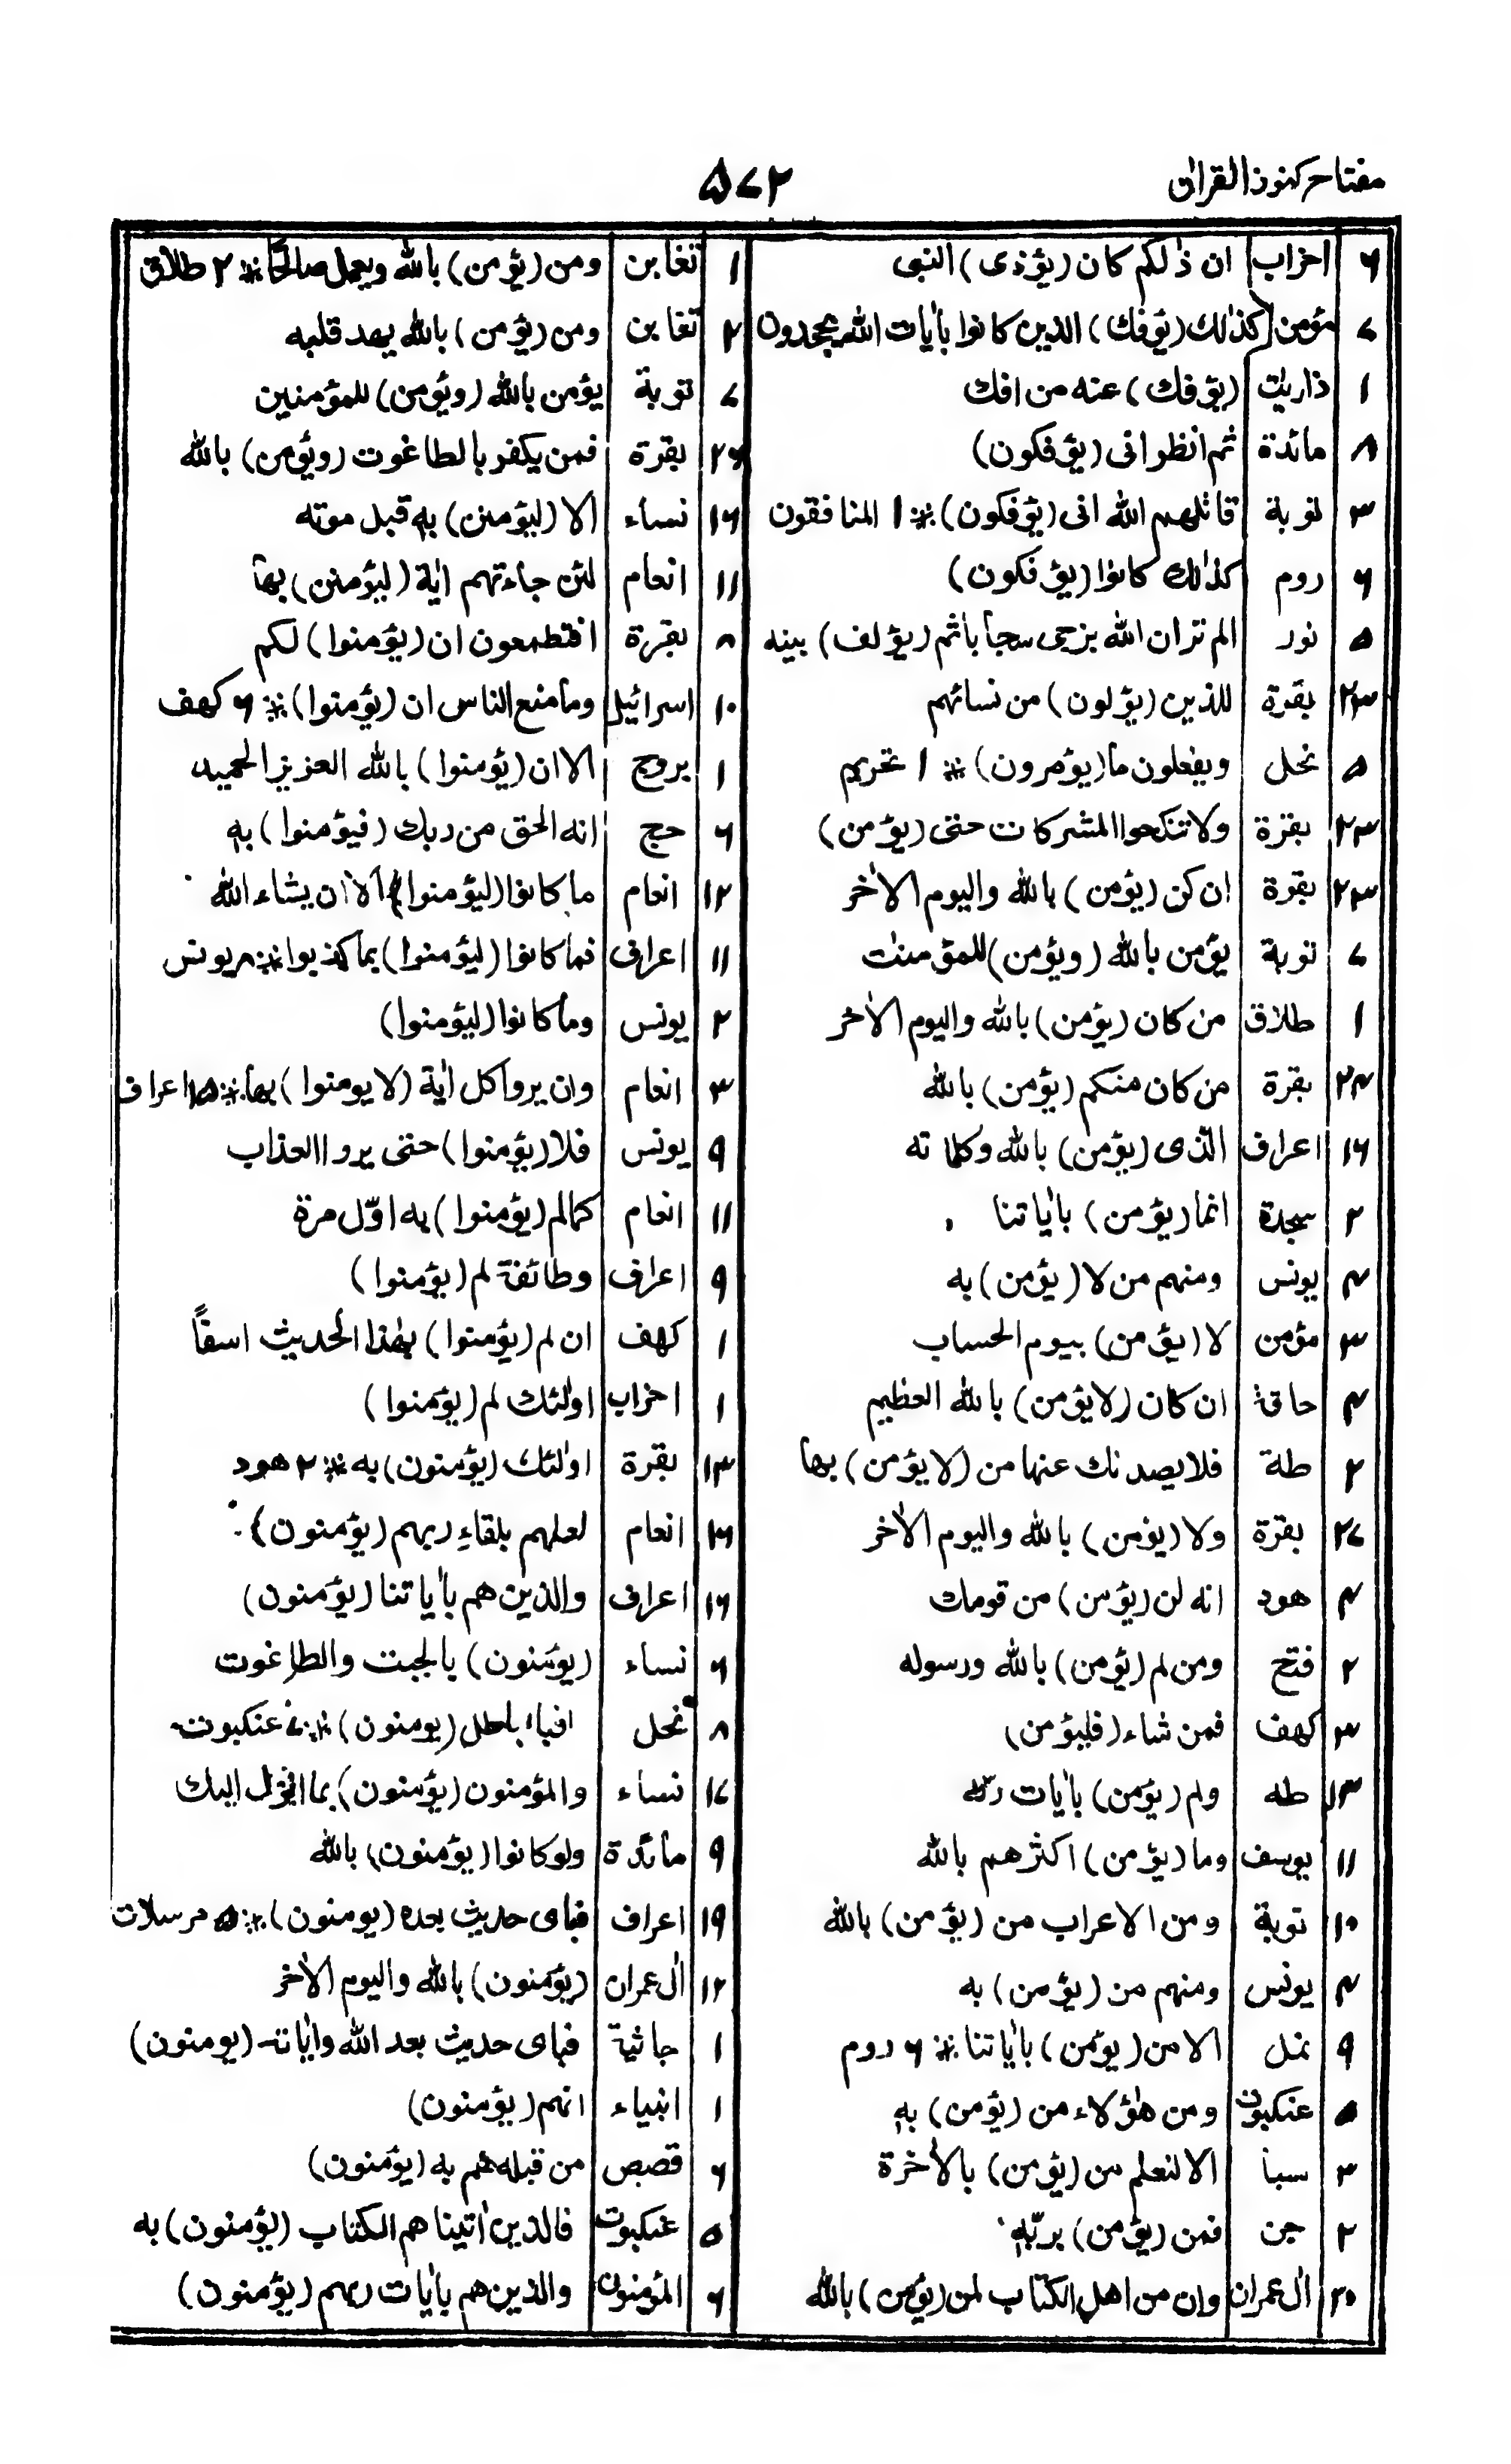 مفتاح کنوز القران
۵۷۲
۶ احزاب ان ذٰلکم کان (یؤذی) النبی
۷ مؤمن کذٰلك (یؤفك) الذین کانوا باٰیات اللہ یجحدون
۱ ذاریٰت (یؤفك) عنه من افك
مائدة ثم انظر انی (یؤفکون)
توبة قاتلهم اللہ انی (یؤفکون) ※ ۱ المنافقون
۶ روم کذٰلك کانوا (یؤفکون)
نور الم تر ان اللہ یزجی سحابا ثم (یؤلف) بینه
بقرة للذین (یؤلون) من نسائهم
نحل ویفعلون ما (یؤمرون) ※ ۱ تحریم
بقرة ولا تنکحوا المشرکات حتی (یؤمن)
بقرة ان کن (یؤمن) باللہ والیوم الاٰخر
۷ توبة یؤمن باللہ (ویؤمن) للمؤمنٰت
۱ طلاق من کان (یؤمن) باللہ والیوم الاٰخر
بقرة من کان منکم (یؤمن) باللہ
اعراف الّذی (یؤمن) باللہ وکلماته
۲ سجدة انما (یؤمن) باٰیاتنا
۴ یونس ومنهم من لا (یؤمن) به
۳ مؤمن لا (یؤمن) بیوم الحساب
حاقة ان کان (لا یؤمن) باللہ العظیم
۲ طهٰ فلا یصدنك عنها من (لا یؤمن) بها
بقرة ولا (یؤمن) باللہ والیوم الاٰخر
۴ هود انه لن (یؤمن) من قومك
۲ فتح ومن لم (یؤمن) باللہ ورسوله
کهف فمن شاء (فلیؤمن)
طه ولم (یؤمن) باٰیات ربه
۱۱ یوسف وما (یؤمن) اکثرهم باللہ
توبة ومن الاعراب من (یؤمن) باللہ
۴ یونس ومنهم من (یؤمن) به
نمل الا من (یؤمن) باٰیاتنا ※ ۶ روم
۵ عنکبوت ومن هٰؤلاء من (یؤمن) به
سبا الا لنعلم من (یؤمن) بالاٰخرة
۲ جن فمن (یؤمن) بربّه
اٰل عمران وان من اهل الکتاب لمن (یؤمن) باللہ
۱ تغابن ومن (یؤمن) باللہ ویعمل صالحًا ※ ۲ طلاق
۲ تغابن ومن (یؤمن) باللہ یهد قلبه
۷ توبة یؤمن باللہ (ویؤمن) للمؤمنین
بقرة فمن یکفر بالطاغوت (ویؤمن) باللہ
نساء الا (لیؤمنن) به قبل موته
انعام لئن جاءتهم اٰیة (لیؤمنن) بها
بقرة افتطمعون ان (یؤمنوا) لکم
۱۰ اسرائیل وما منع الناس ان (یؤمنوا) ※ ۶ کهف
۱ بروج الا ان (یؤمنوا) باللہ العزیز الحمید
۶ حج انه الحق من ربك (فیؤمنوا) به
۱۲ انعام ما کانوا (لیؤمنوا) الا ان یشاء اللہ
۱۱ اعراف فما کانوا (لیؤمنوا) بما کذبوا ※ یونس
۲ یونس وما کانوا (لیؤمنوا)
۳ انعام وان یروا کل اٰیة (لا یومنوا) بها ※ اعراف
۹ یونس فلا (یؤمنوا) حتی یروا العذاب
۱۱ انعام کما لم (یؤمنوا) به اوّل مرة
۹ اعراف وطائفة لم (یؤمنوا)
۱ کهف ان لم (یؤمنوا) بهٰذا الحدیث اسفاً
۱ احزاب اولٰئك لم (یؤمنوا)
بقرة اولٰئك (یؤمنون) به ※ ۲ هود
انعام لعلهم بلقاءِ ربهم (یؤمنون)
اعراف والذین هم باٰیاتنا (یؤمنون)
نساء (یؤمنون) بالجبت والطاغوت
نحل (یومنون) ※ عنکبوت
نساء والمؤمنون (یؤمنون) بما انزل الیك
۹ مائدة ولو کانوا (یؤمنون) باللہ
۱۹ اعراف فبای حدیث بعده (یومنون) ※ مرسلات
۱۲ اٰل عمران (یؤمنون) باللہ والیوم الاٰخر
۱ جاثیة فبای حدیث بعد اللہ واٰیاته (یومنون)
۱ انبیاء انهم (یؤمنون)
۶ قصص من قبله هم به (یؤمنون)
۵ عنکبوت فالذین اٰتیناهم الکتاب (یؤمنون) به
۶ المؤمنون والذین هم باٰیات ربهم (یؤمنون)